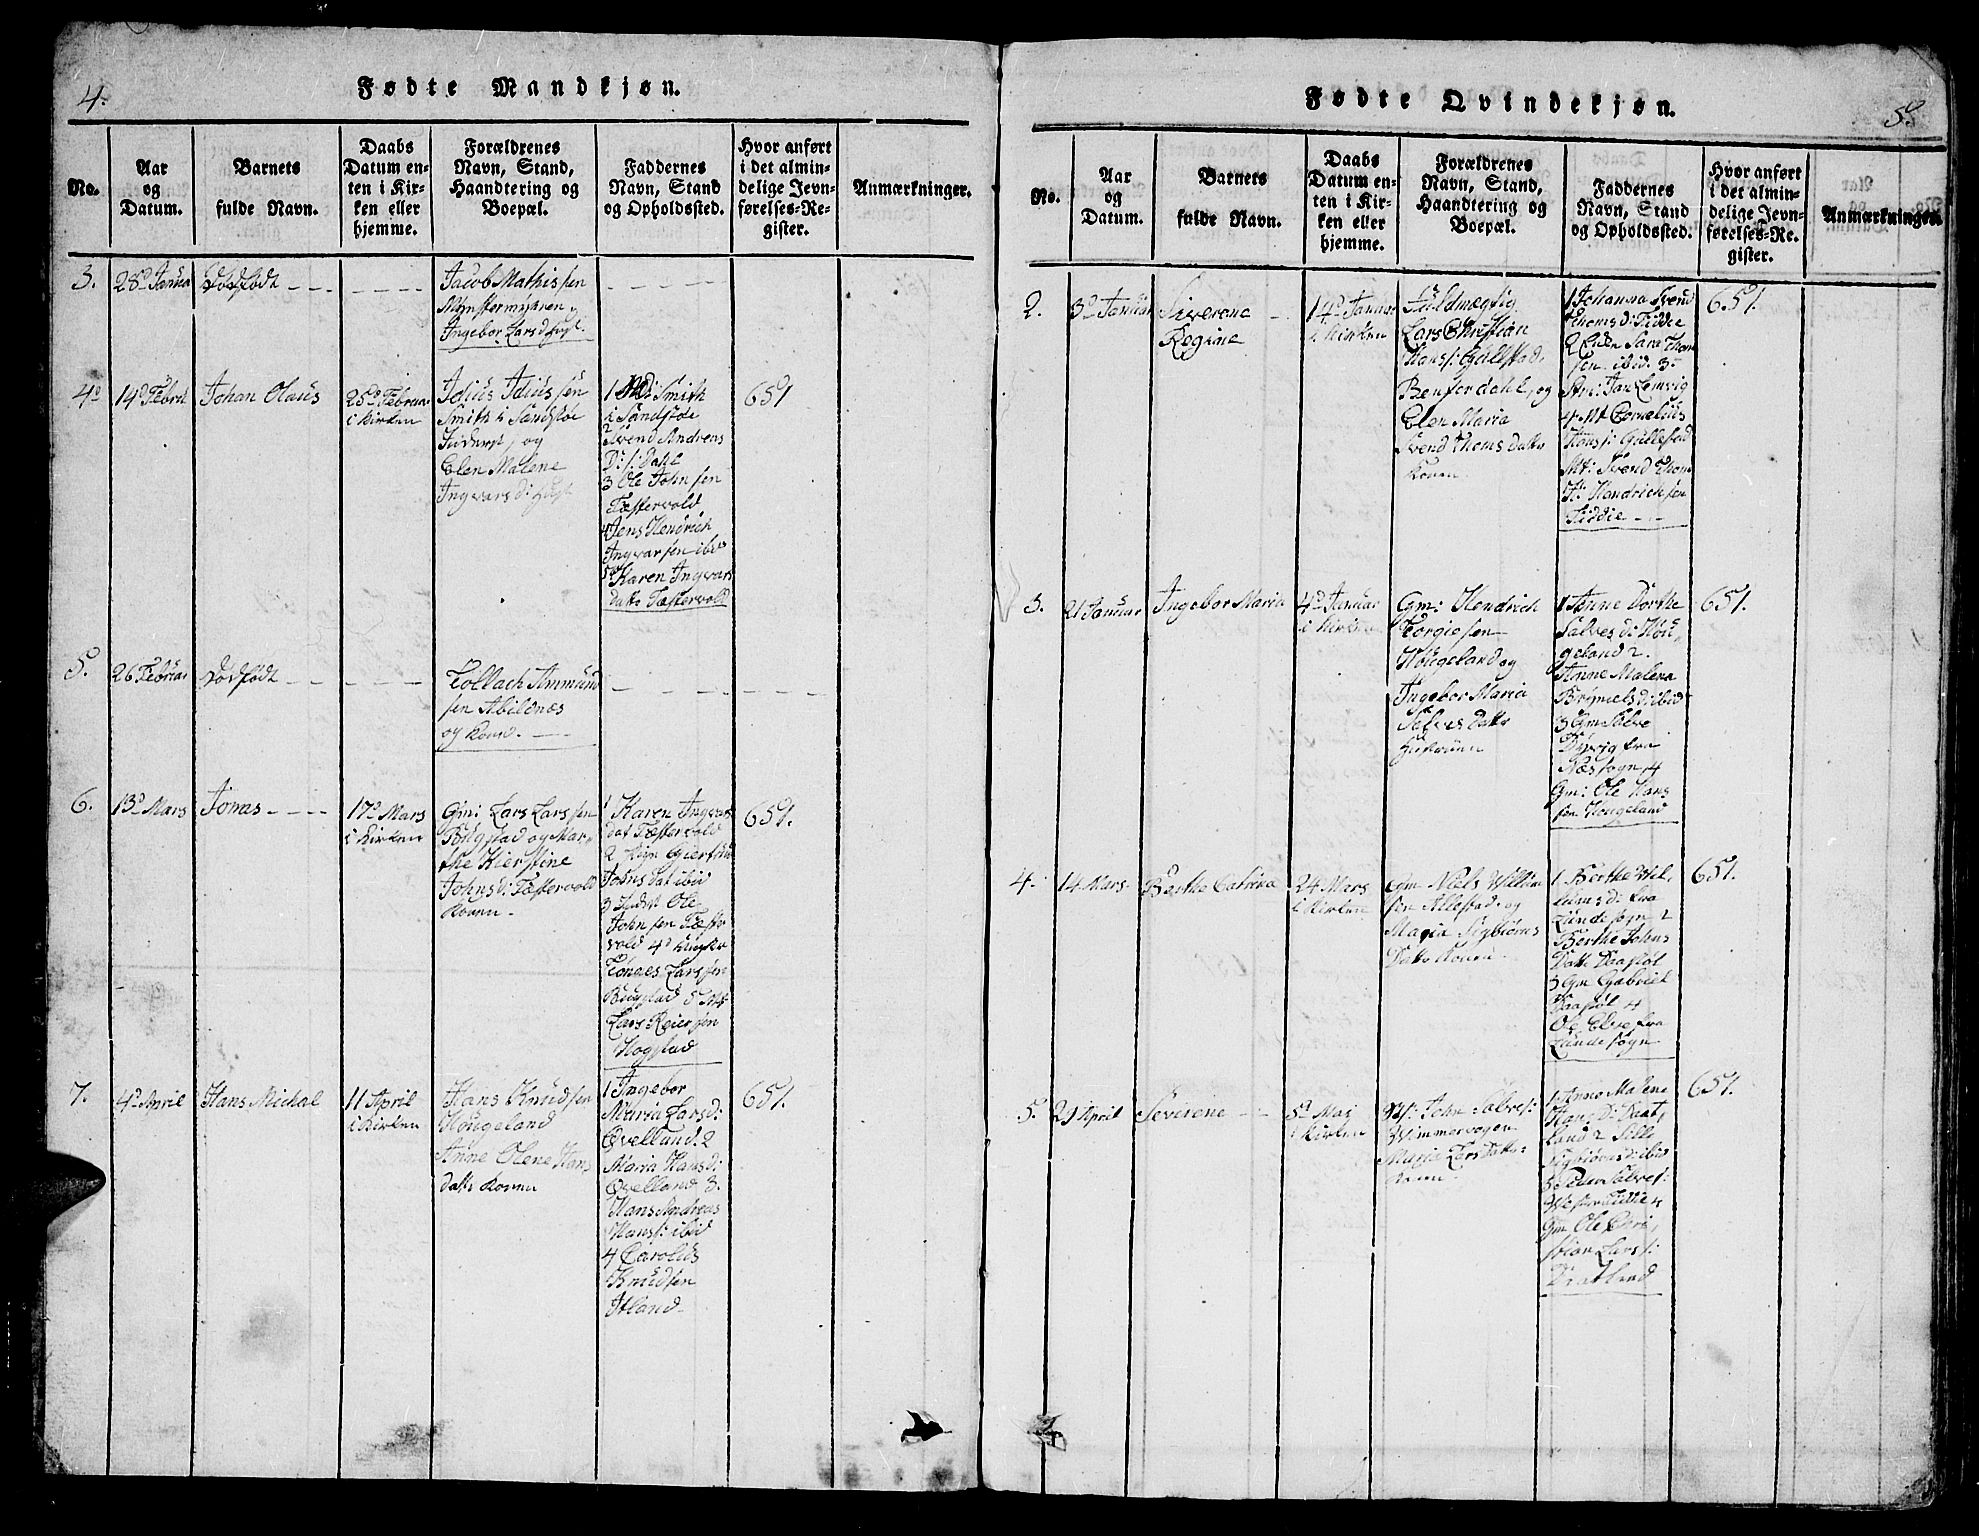 4.
Fødte Mandkjøn.
No.
Aar
og
Datum.
Barnets
fulde Navn.
Daabs
Datum en-
ten i Kir-
ken eller
hjemme.
Forældrenes
Navn, Stand,
Haandtering og
Boepæl.
Faddernes
Navn, Stand
og Opholdssted.
Hvor anført
i det almin-
delige Jevn-
førelses-Re-
gister.
Anmærkninger.
3.
28d Janua
Dødfødt
Jacob Mathissen
Ingebor Larsd
4d
14d Febru
Johan Olaus
25d Februar
i Kirken
Idius Idiussen
Smith i Sandstøe
og
Elen Malene
Ingvarsd:
1 Md: Smith
i Sandstøe
2 Svend Andreas
D: s: Dahl
3 Ole Johnsen
Tæstervold
4 Jens Hendrich
Ingvarsen ibid
5 Karen Ingvars
datt Tæstervold
651
5.
26 Februar
Dødfødt
Tollach Ammund
sen Abildnæs
og Kone.
6.
13d Mars
Jonas
17d Mars
i Kirken
Gm: Lars Larssen
Bugstad og Mar-
the Kierstine
Johnsd: Tæstervold
Konen
1 Karen Ingvars
dat Tæstervold
2
Johnsdat ibid
3 Ole
Johnsen Tæster
vold 4d
Tønnes Larssen
Bugstad 5
Lars Reiersen
Hogstad
651.
7.
4d April
Hans Michal
11 April
i Kirken
Hans Knudsen
Høugeland
Anne Olene Hans
datt Konen
1 Ingebor
Maria Larsd:
Øvelland. 2
Maria Hansd:
Øvelland 3.
Hans Andreas
Hanss: ibid
4 Carolus
Knudsen
Itland
651.
5d
Fødte Qvindekjøn.
No.
Aar
og
Datum.
Barnets
fulde Navn.
Daabs
Datum en-
ten i Kir-
ken eller
hjemme.
Forældrenes
Navn, Stand,
Haandtering og
Boepæl.
Faddernes
Navn, Stand
og Opholdssted.
Hvor anført
i det almin-
delige Jevn-
førelses-Re-
gister.
Anmærkningen.
2.
3d Januar
Siverene
Regine
14d Januar
i Kirken
Fuldmægtig
Lars Christian
Hans: Gullestad,
og
Elen Maria
Svend Thoms Datter
Konen
1 Johanna Svend
Thomsd: Fidde
2 Elen Sara Thom
sen ibid. 3.
4 Mt Cornelius
Hanss: Gullestad
Mt: Svend Thom
Hendrichsen
Fidde
651.
3.
21 Januar
Ingebor Maria
4d Januar
i Kirken
Gm: Hendrich
Torgiesen
Høugeland og
Ingebor Maria
Salves Datter
1 Anne Dorthe
Salvesd: Høu
geland 2.
Anne Malena
Brynielsd: ibid
3 Gm Salve
Dyvig fra
Næs sogn 4
Gm: Ole Hans
sen Høugeland
651.
4.
14 Mars
Berthe Catrina
24 Mars
i Kirken
Gm Niels Willum
sen Allestad, og
Maria Sigbiørns
Datter Konen
1 Berthe Wil,
lumsd: fra
Lunde sogn 2
Berthe Johns
Datt Daastøl
3 Gm Gabriel
Daastøl 4
Ole Elve fra
Lunde sogn
651.
5.
21 April
Severene
5d Maj
i Kirken
John Salves:
Wimmervogen
Maria Lars Datter
Konen
1 Anne Malene
Hans D: Drat,
land 2 Sille
Sigbiørnsd: ibid
3 Peder Salves:
4
Gm Ole Chri,
stian Lars:
Dratland
651.